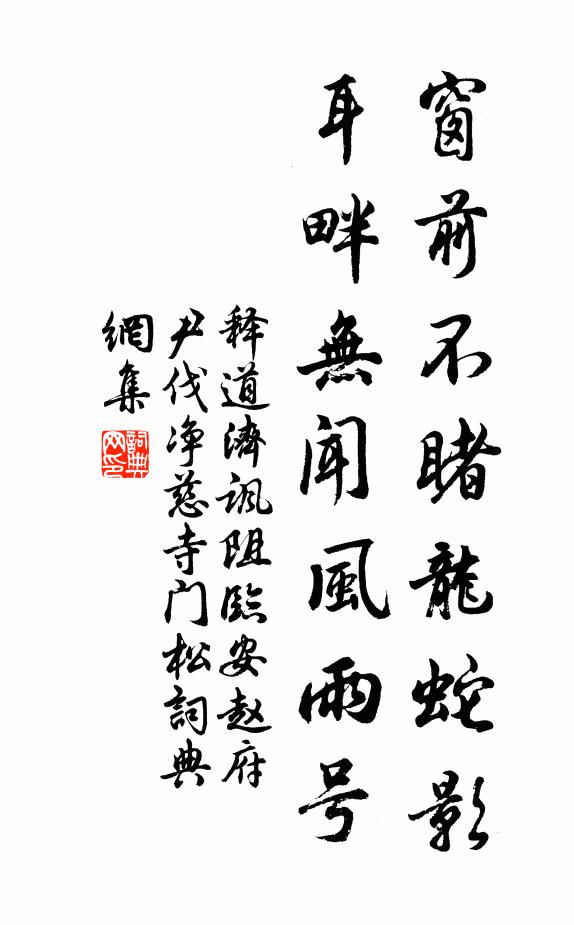 窗前不睹龍蛇影
耳畔無聞風雨号
释道濟諷阻臨安赵府
尹伐净慈寺门松詞典
網集
詞典网印